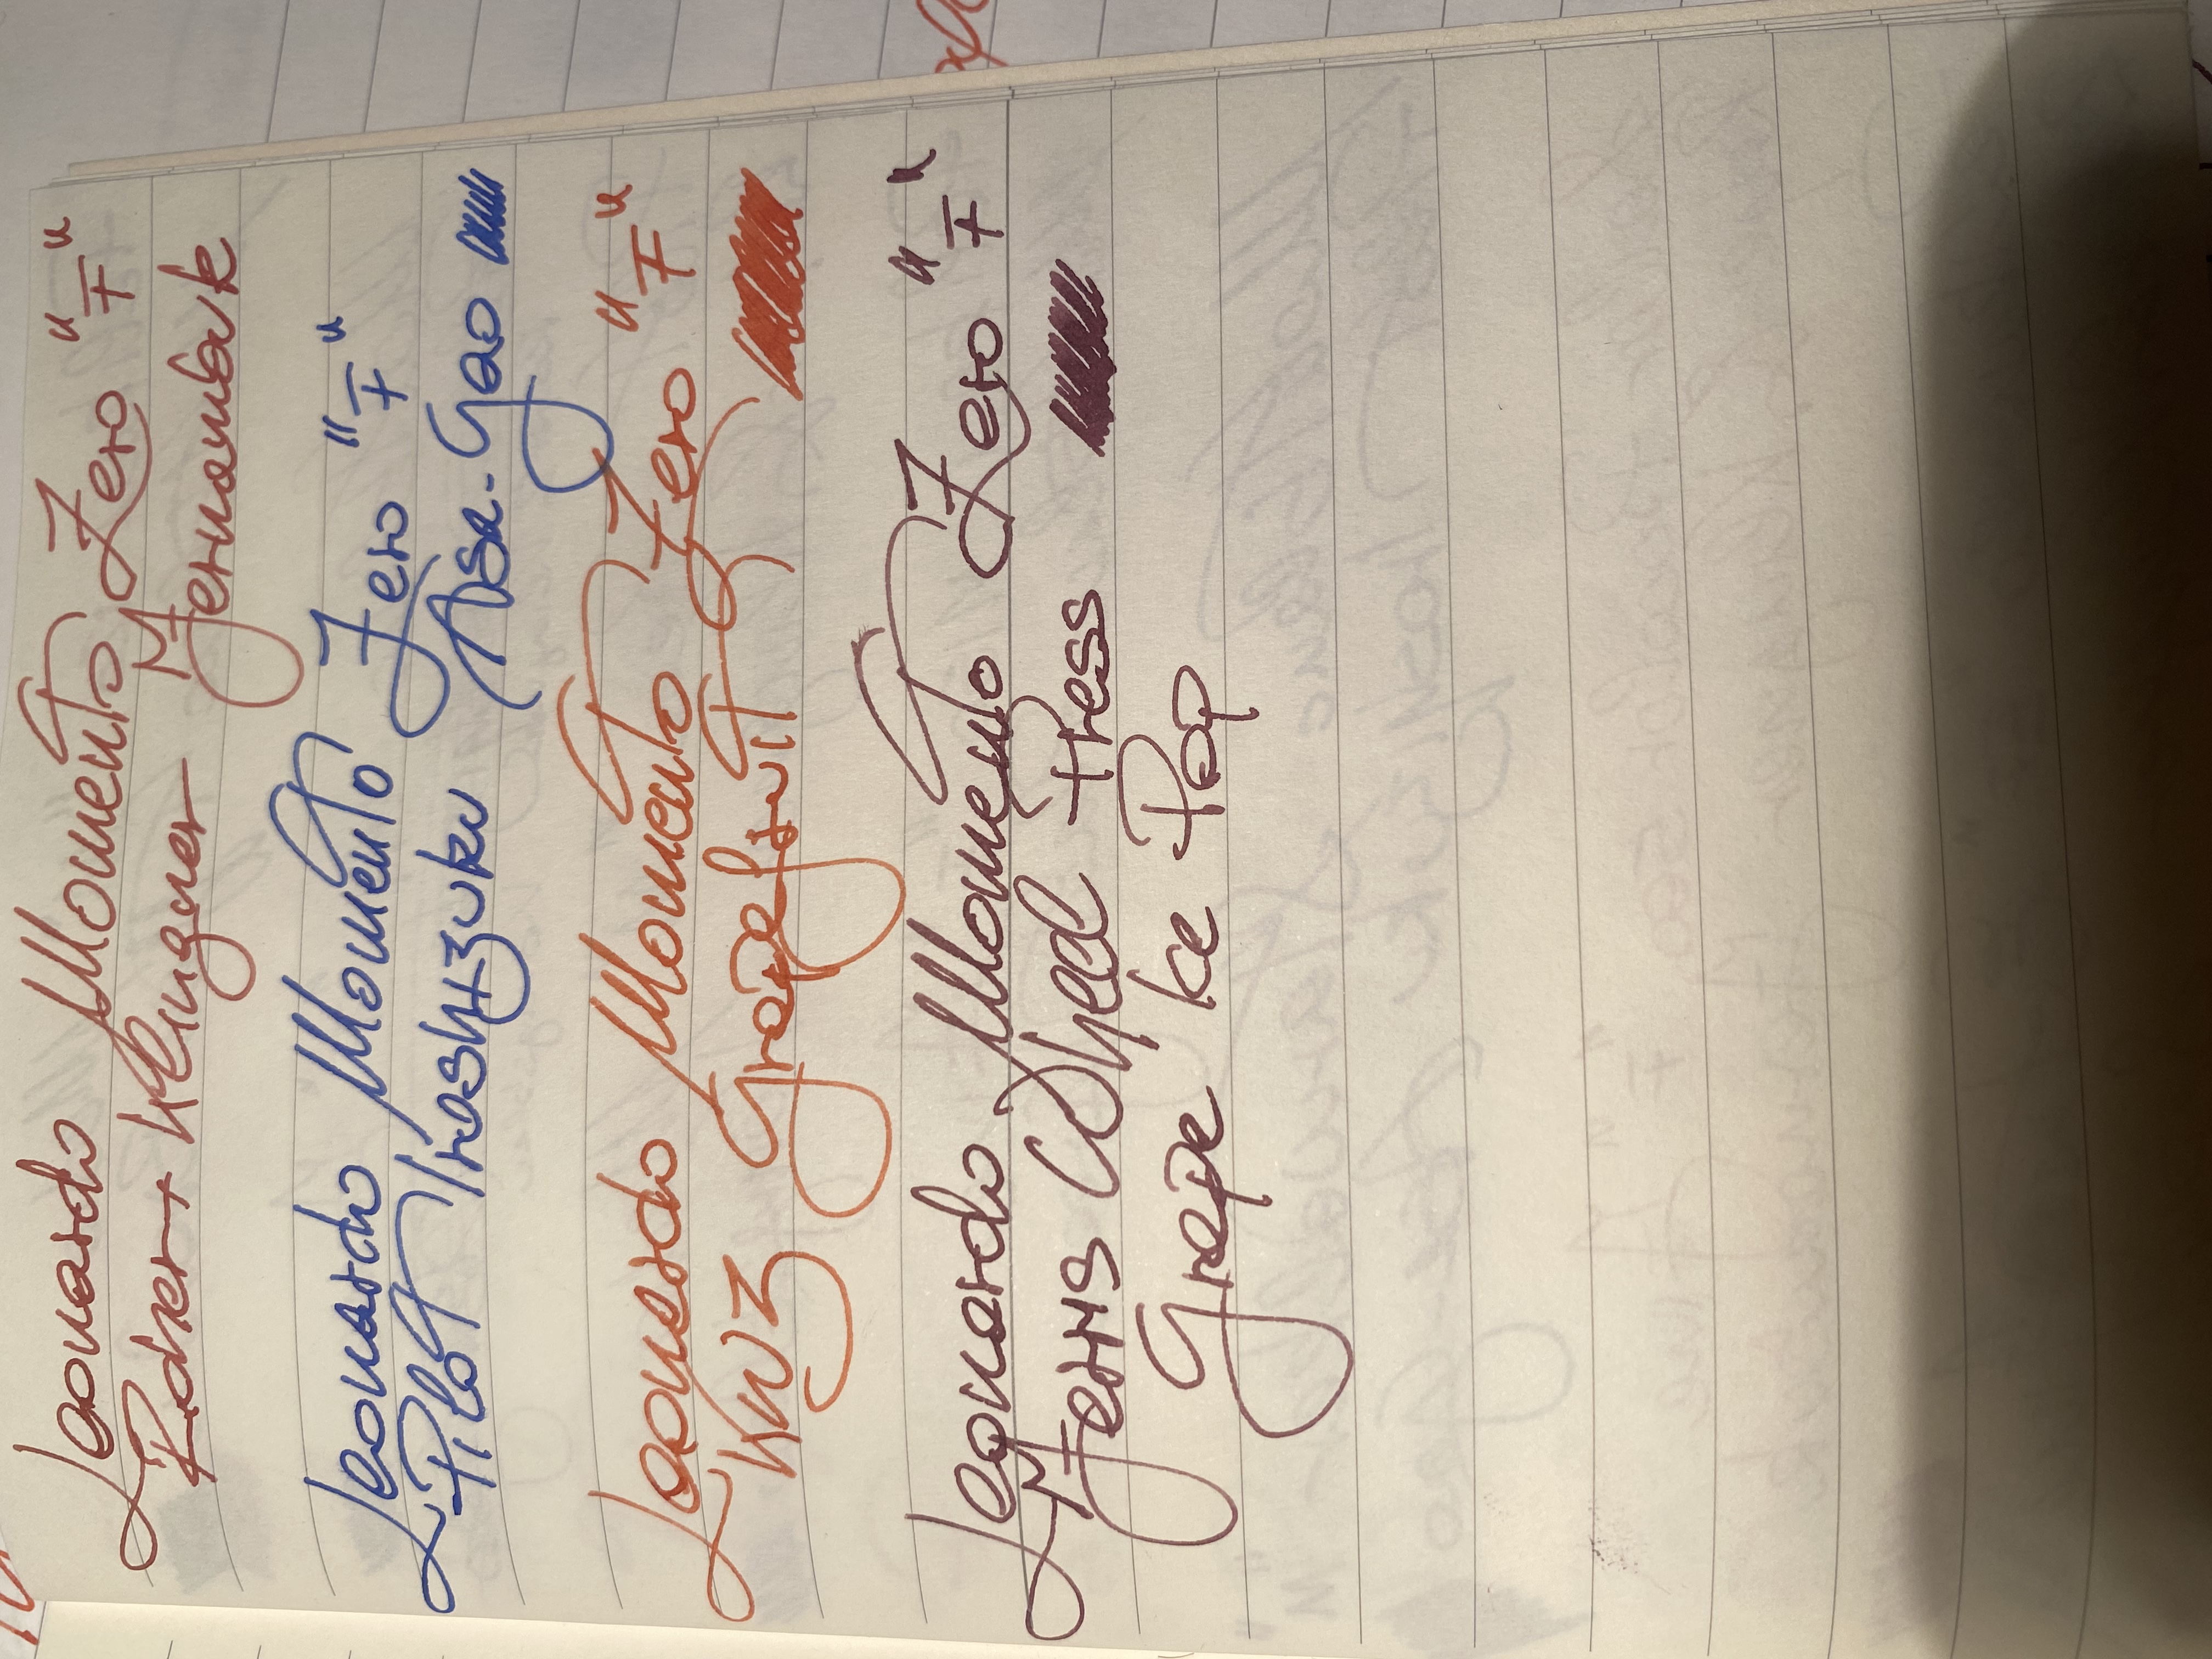 Leonardo Momento Zero "F"
Robert Klingner Jernanbark
Leonardo Momento Zero "F"
Pilot Iroshizuku Asa-Gao
Leonardo Momento Zero "F"
KWZ Grapefruit
Leonardo Momento Zero "F"
Ferris Wheel Press
Grape Ice Pop